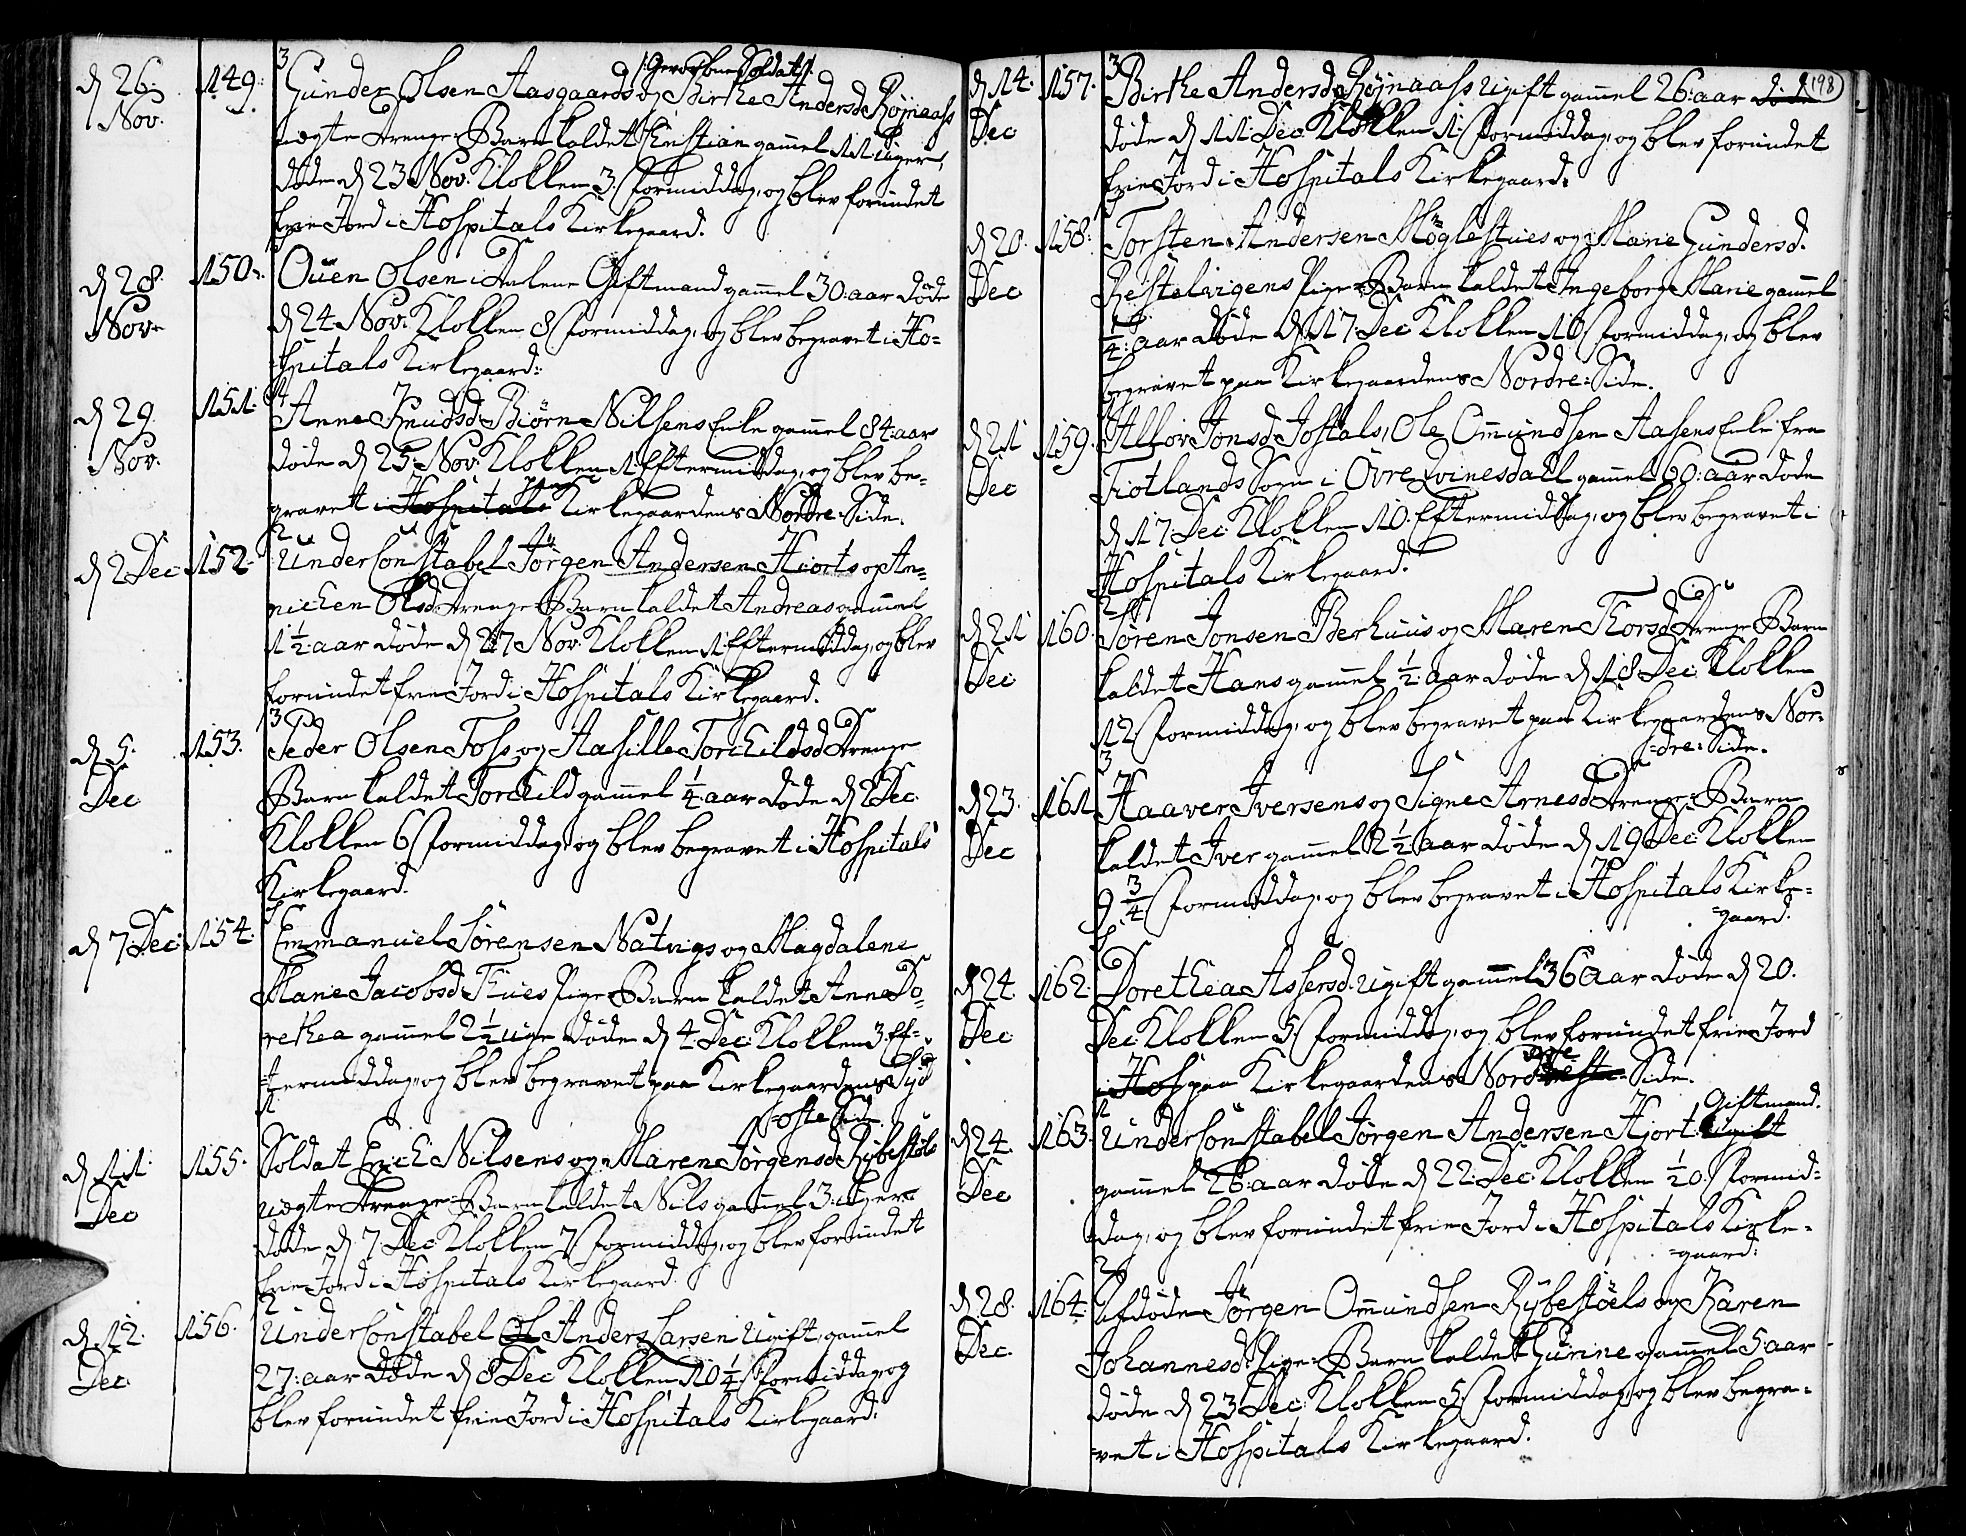 d 26: Nov. 149: 3 Gunder Olsen Aasgaards og /: Gevorbne Soldat :/ Birthe Andersd. Røjnaass
uægte Drenge-Barn kaldet Christian gammel 11 uger,
døde d 23 Nov. Klokken 3. Formiddag, og blev forundet
frie Jord i Hospitals Kirkegaard.
d 28. Nov. 150: Ouen Olsen i Dalene Giftmand gammel 30: aar døde
d 24 Nov. Klokken 8 Formiddag, og blev begravet i Ho-
spitals Kirkegaard:
d 29. Nov. 151: Anne Knudsd. Biørn Nilsens Enke gammel 84: aar
døde d 25 Nov. Klokken 1. Eftermiddag, og blev be-
gravet i Hospitals paa Kirkegaardens Nordre-Side.
d 2 Dec: 152. 2 Underconstabel Jörgen Andersen Hiorts og An-
nichen Olsd. Drenge-Barn kaldet Andreas gammel
1½: aar døde d 27 Nov. Klokken 1. Eftermiddag, og blev
forundet frie Jord i Hospitals Kirkegaard.
d 5. Dec 153. 3 Peder Olsen Foss og Aasille Torchildsd. Drenge
Barn kaldet Torchild gammel ¼: aar døde d 2 Dec.
Klokken 6 Formiddag, og blev begravet i Hospitals
Kirkegaard.
d 7 Dec: 154. Emmanuel Sørensen Natvigs og Magdalene
Marie Jacobsd. Thues Pige-Barn kaldet Anne Do-
rethea gammel 2½ uge døde d 4 Dec: Klokken 3. Ef-
termiddag, og blev begravet paa Kirkegaardens Syd
-oste Side.
d 11. Dec 155. 1 Soldat Erich Nilsens og Maren Jørgensd. Rybestöls
uægte Drenge-Barn kaldet Nils gammel 3: uger
døde d 7 Dec Klokken 7 Formiddag, og blev forundet
frie Jord i Hospitals Kirkegaard.
d. 12. Dec: 156. 2 Underconstabel Ol Anders Larsen Ugift, gammel
27: aar døde d 8 Dec Klokken 10¼ Formiddag, og
blev forundet frie Jord i Hospitals Kirkegaard.
198
d 14. Dec 157. 3 Birthe Andersd. Røjnaass Ugift gammel 26: aar døde
døde d 11 Dec. Klokken 1. Formiddag, og blev forundet
frie Jord i Hospitals Kirkegaard.
d 20. Dec 158: Torsten Andersen Møglestues og Marie Gundersd.
Pige-Barn kaldet Ingeborg Marie gammel
¼: aar døde d 17: Dec Klokken 10 Formiddag, og blev
begravet paa Kirkegaardens Nordre-Side.
d 21 Dec 159. Allov Jonsd. Jostals, Ole Omundsen Aasens Enke fra
Fiotlands Sogn i Övre Qvinesdall gammel 60: aar døde
d 17: Dec: Klokken 10. Eftermiddag, og blev begravet i
Hospitals Kirkegaard.
d 21 Dec. 160. 2 Søren Jonsen Berhuus og Maren Thorsd. Drenge Barn
kaldet Hans gammel ½: aar døde d 18 Dec: Klokken
12. Formiddag, og blev begravet paa Kirkegaardens Nor-
-dre-Side.
d 23. Dec 161. 3 Haaver Iversens og Signe Arnesd. Drenge-Barn
kaldet Iver gammel 2½: aar døde d 19 Dec: Klokken
9¾ Formiddag, og blev begravet i Hospitals Kirke-
-gaard.
d 24. Dec 162. Dorethea Assersd. Ugift gammel 36 aar døde d 20.
Dec: Klokken 5 Formiddag, og blev forundet frie Jord
i Hos paa Kirkegaardens Nordre Side.
d 24. Dec 163. 1 Underconstabel Jörgen Andersen Hjort Ugift Giftmand.
gammel 26: aar døde d 22: Dec: Klokken ½ 0. Formid-
dag, og blev forundet frie Jord i Hospitals Kirke-
-gaard:
d 28. Dec. 164. 2 Afdøde Jörgen Omundsen Rybestöels og Karen
Johannesd. Pige-Barn kaldet Gurine gammel 5 aar
døde d 23 Dec: Klokken 5. Formiddag, og blev begra-
-vet i Hospitals Kirkegaard.